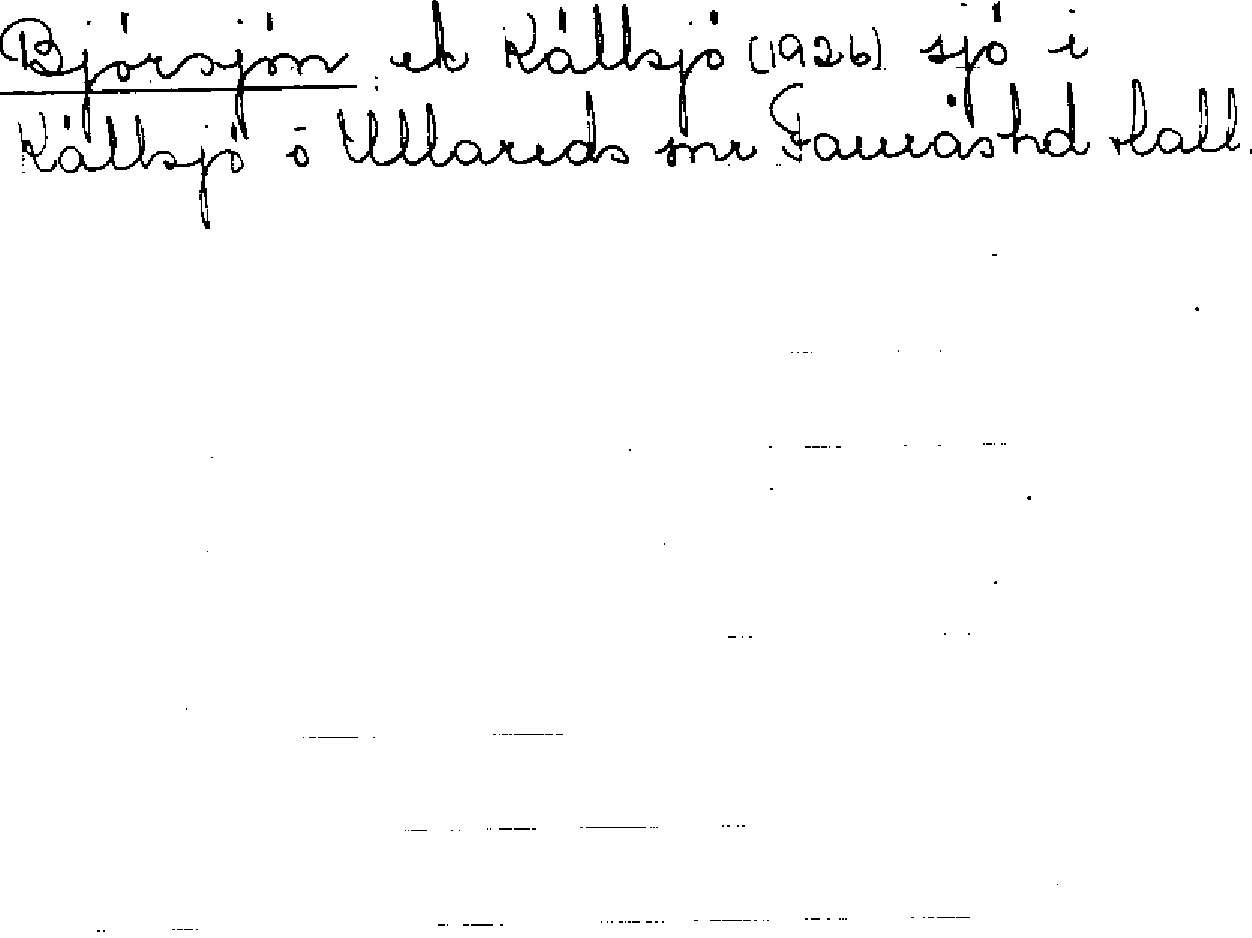 Björsjön ek Källsjö [1926] sjö i
Källsjö o Ullareds snr Faurås hd Hall.